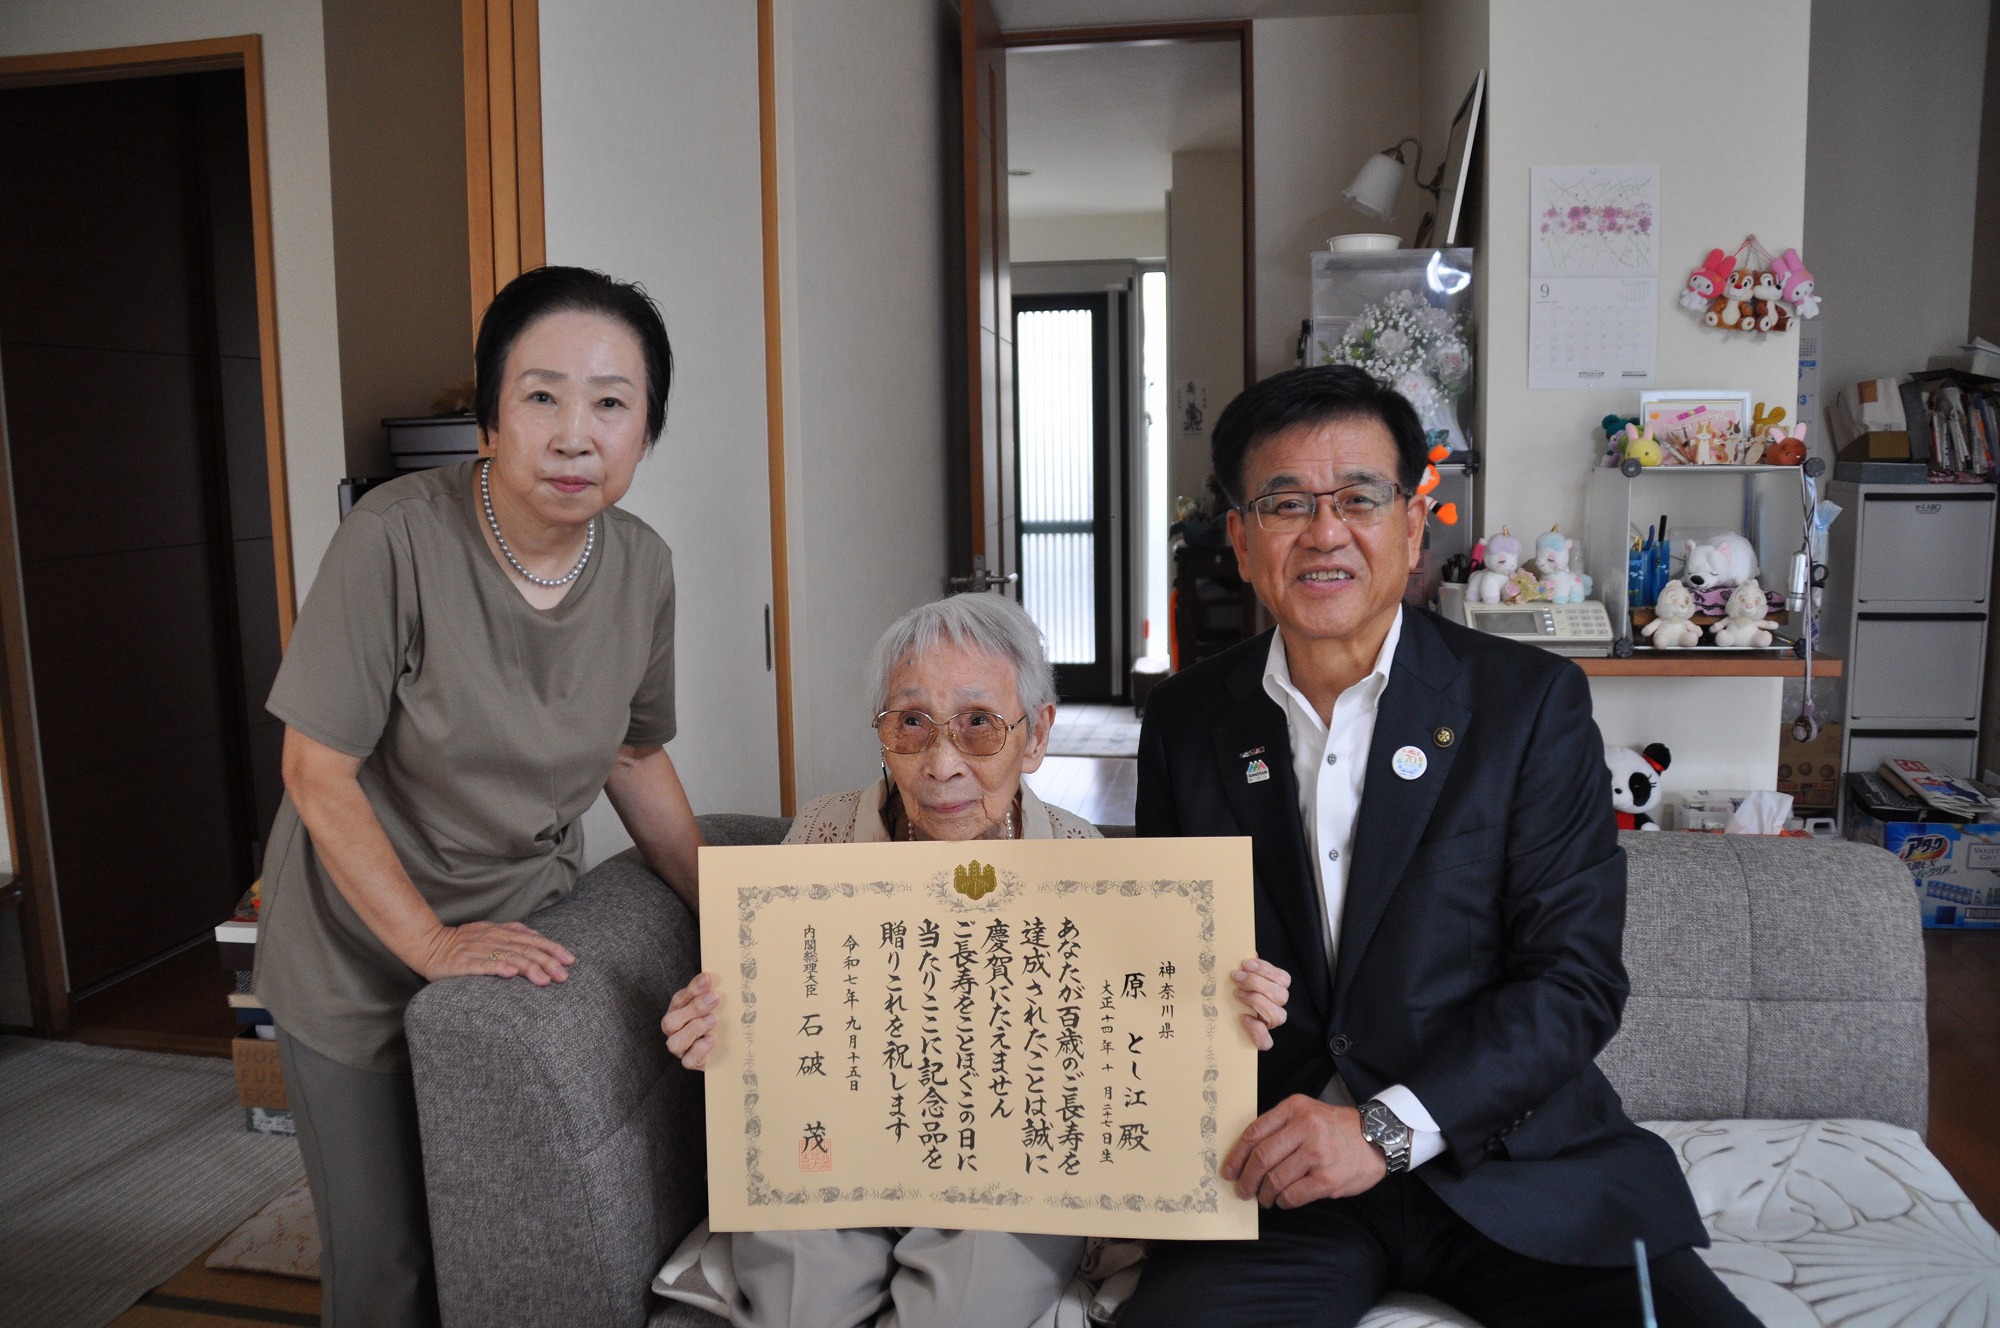 神奈川県
原 とし江 殿
大正十四年十月二十七日生
あなたが百歳のご長寿を
達成されたことは誠に
慶賀にたえません
ご長寿をことほぐこの日に
当たりここに記念品を
贈りこれを祝します
令和七年九月十五日
内閣総理大臣 石破 茂
9
70
e-LABO
アタック
VARIETY
GIFT
HOP
FUN
EXC